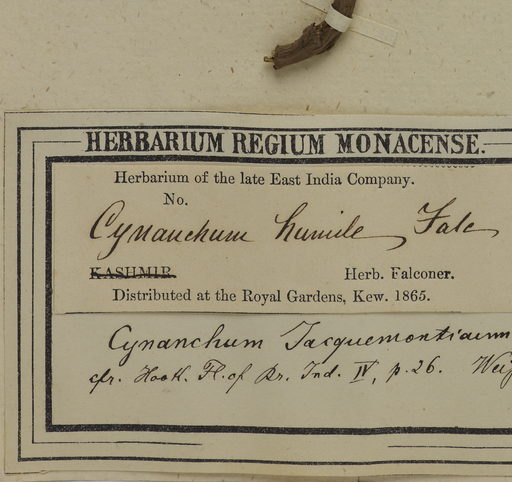 HERBARIUM REGIUM MONACENSE.
Herbarium of the late East India Company.
No.
Cynanchum humile Falc
KASHMIR.
Herb. Falconer.
Distributed at the Royal Gardens, Kew. 1865.
Cynanchum Jacquemontianum
cfr. Hook. Fl. of Br. Ind. IV, p. 26.